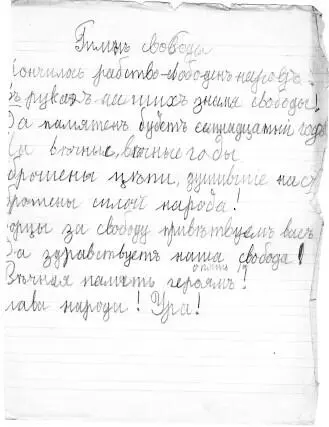 Гимнъ свободы
Кончилось рабство – свободенъ народъ
Въ рукахъ нашихъ знамя свободы!
Да памятенъ будетъ семнадцатый годъ
На вѣчные, вѣчные годы
брошены цѣпи, душившіе насъ
брошены силой народа!
борцы за свободу привѣтствуемъ васъ
Да здравствуетъ наша свобода!
Вѣчная память героямъ!
слава народу! Ура!